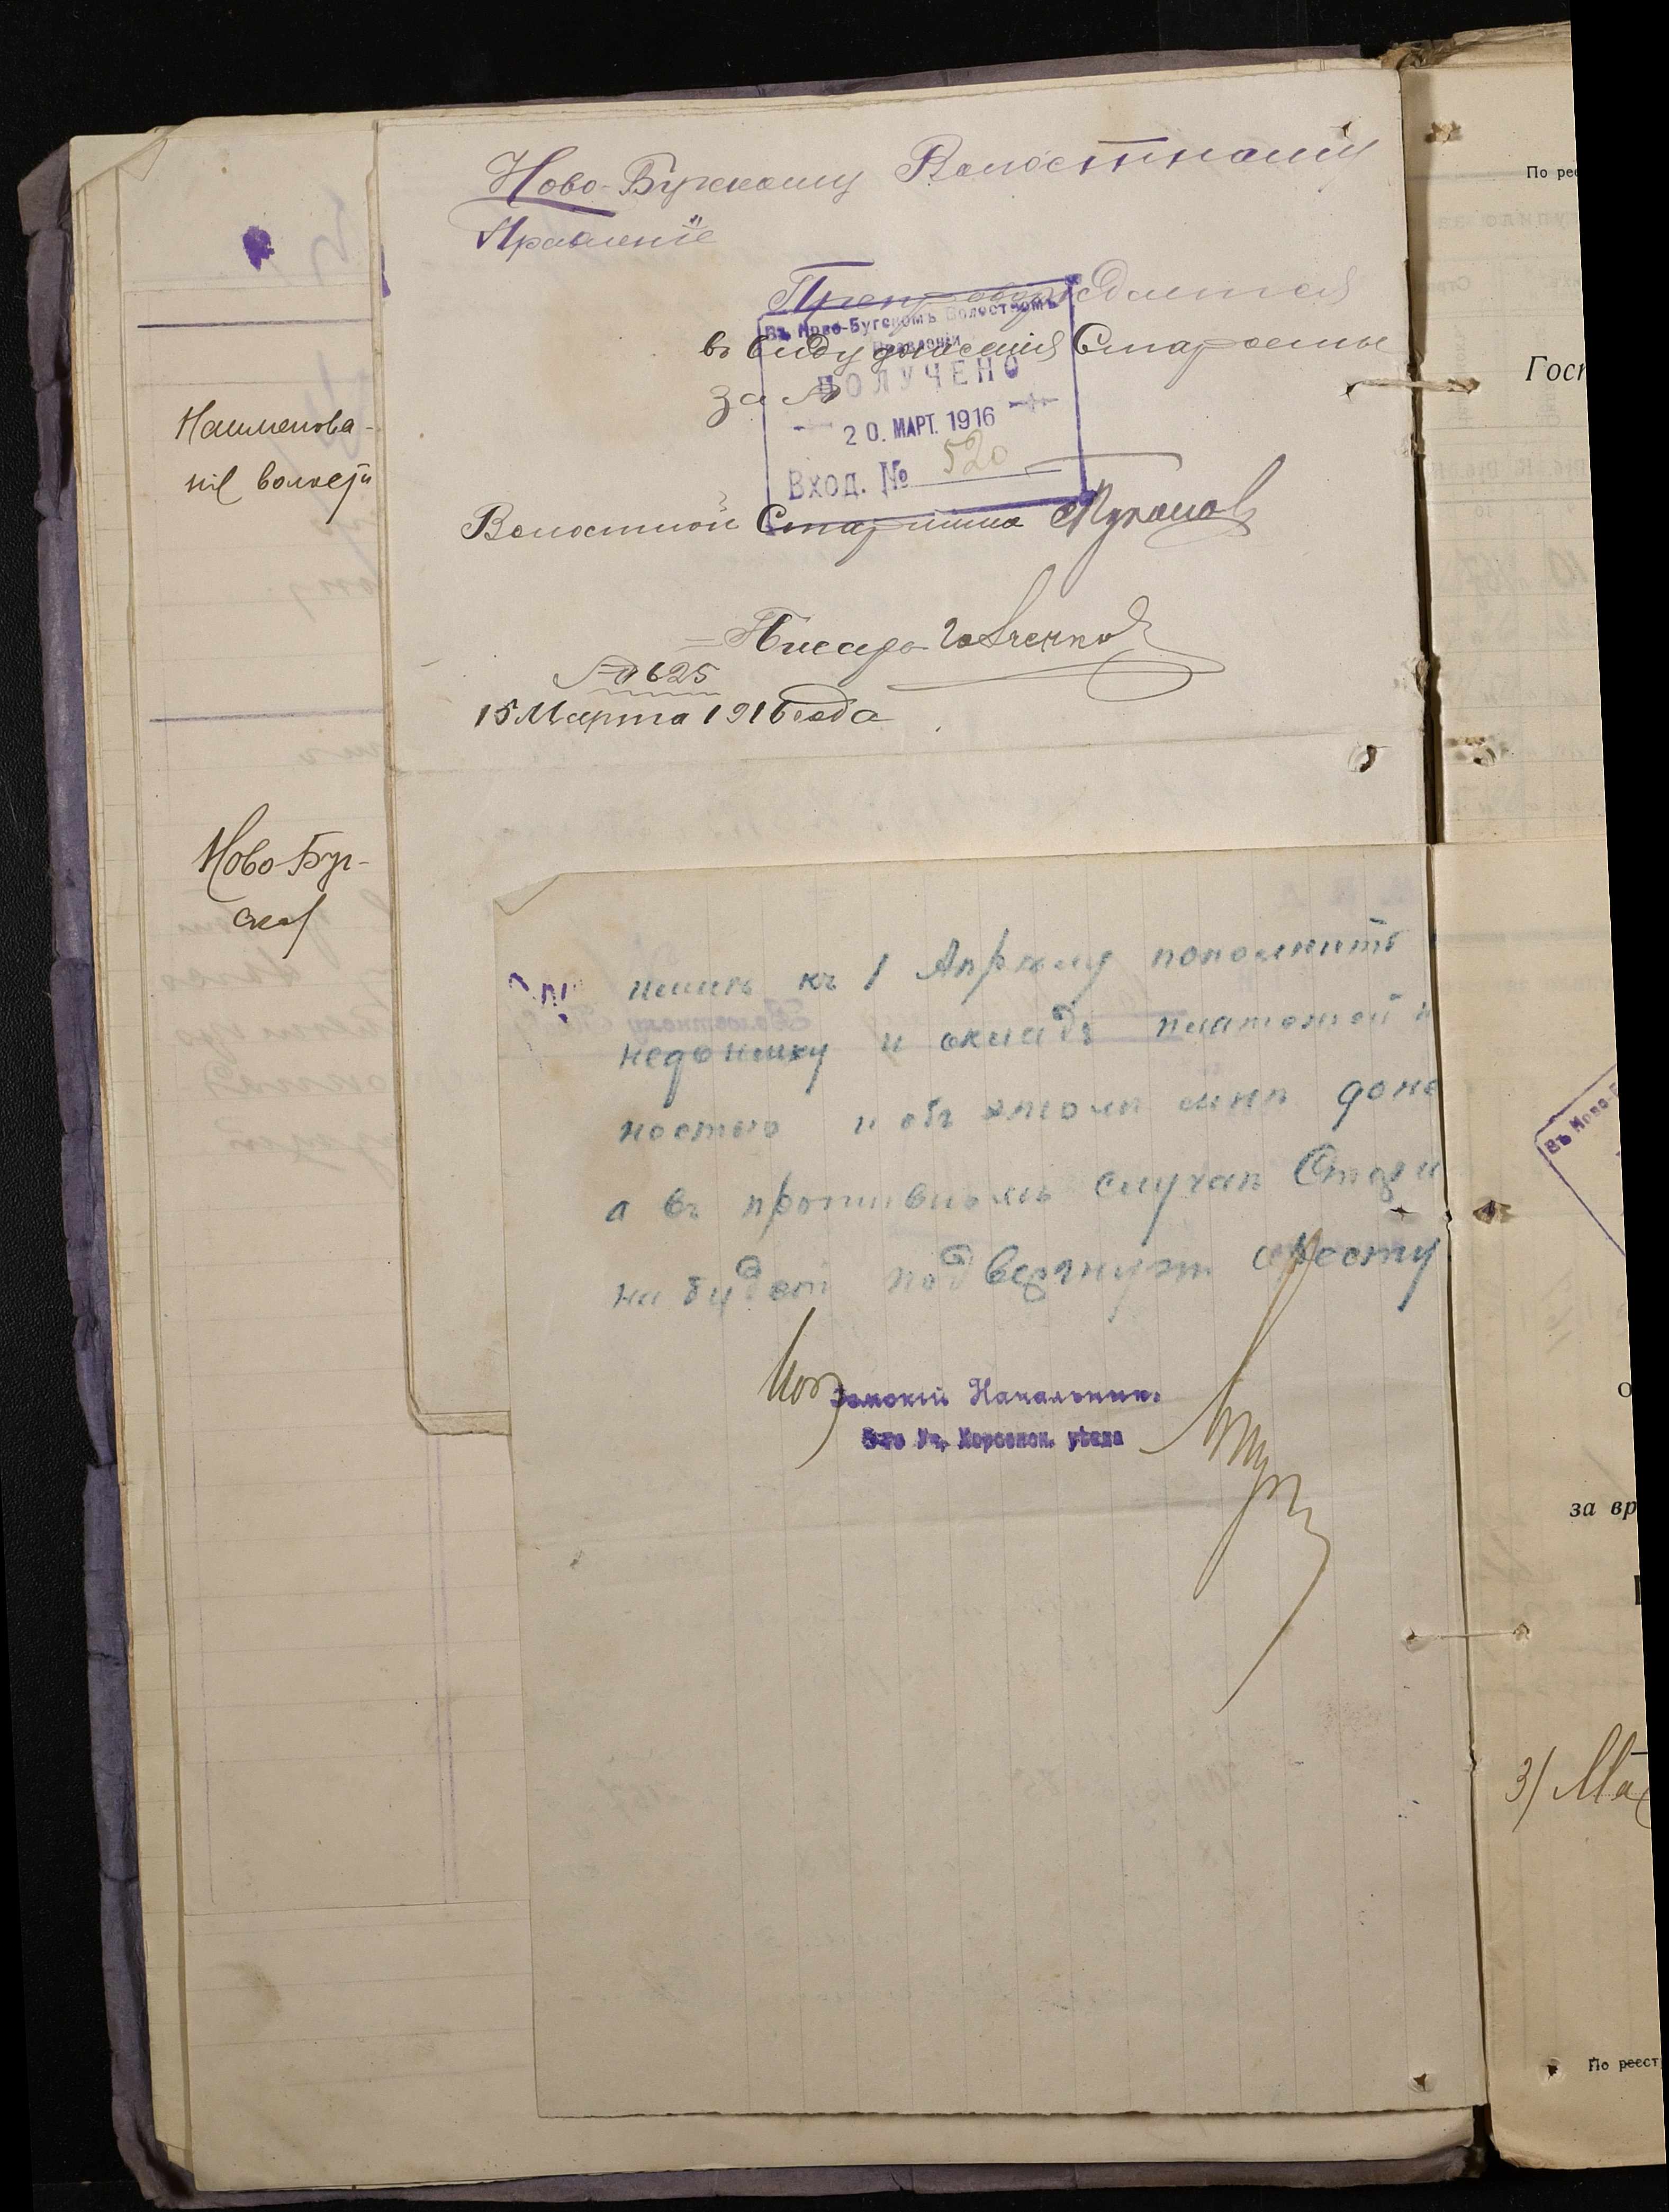 Ново-Бугскому Волостному
Правленію
Препровождается
въ виду донесенія Старосты
за №
Въ Ново-Бугскомъ Волостномъ
Правленіи
ПОЛУЧЕНО
20. МАРТ. 1916
Вход. № 520
Волостной Старшина
Писарь
№ 625
15 Марта 1916 года
Наименова-
ніе волости
Ново-Буг-
ская
къ 1 Апрѣлю пополнить
недоимку и окладъ
ностью и объ этомъ мнѣ доне
а въ противномъ случаѣ Старши
на будетъ подвергнутъ аресту
Земскій Начальникъ
5-го Уч. Херсонск. уѣзда
По рее
Гос
за вр
3) Ма
По реест
Въ Ново-Б